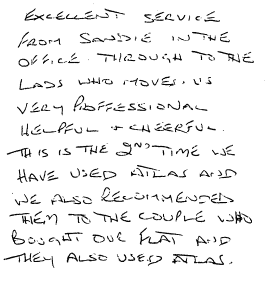 EXCELLENT SERVICE
FROM SANDIE IN THE
OFFICE. THROUGH TO THE
LADS WHO MOVED US
VERY PROFFESSIONAL
HELPFUL + CHEERFUL.
THIS IS THE 2ND TIME WE
HAVE USED ATLAS AND
WE ALSO RECOMMENDED
THEM TO THE COUPLE WHO
BOUGHT OUR FLAT AND
THEY ALSO USED ATLAS.